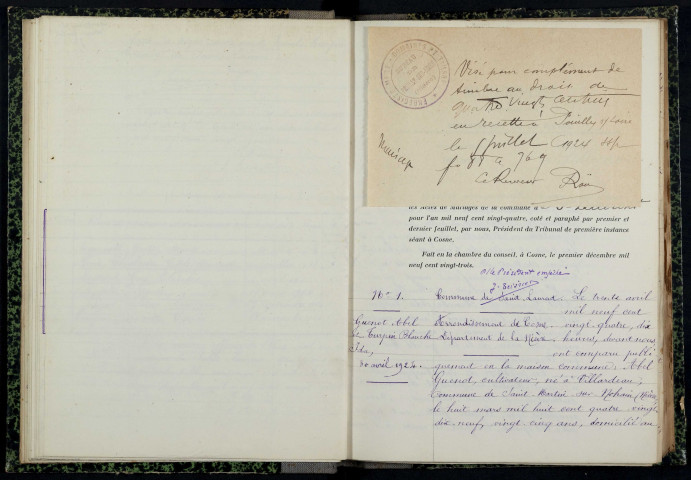 Visé pour complément de
timbre au droit de
quatre vingts centimes
en recette à Pouilly s/Loire
le juillet 1924
fo 81 c 769
Le Receveur
les Actes de Mariages de la commune d
pour l'an mil neuf cent vingt-quatre, coté et paraphé par premier et
dernier feuillet, par nous, Président du Tribunal de première instance
séant à Cosne.
Fait en la chambre du conseil, à Cosne, le premier décembre mil
neuf cent vingt-trois.
P/le Président empêché
No 1.
Guenot Abel
et Turpin Blanche
Ida,
30 avril 1924.
Commune de Saint Laurent
Arrondissement de Cosne
Département de la Nièvre
Le trente avril
mil neuf cent
vingt quatre, dix
heures, devant nous
ont comparu publi
quement en la maison commune: Abel
Guenot, cultivateur, né à Villardeau,
Commune de Saint Martin sur Nohain (Nièvre)
le huit mars mil huit cent quatre vingt
dix neuf, vingt cinq ans, domicilié au